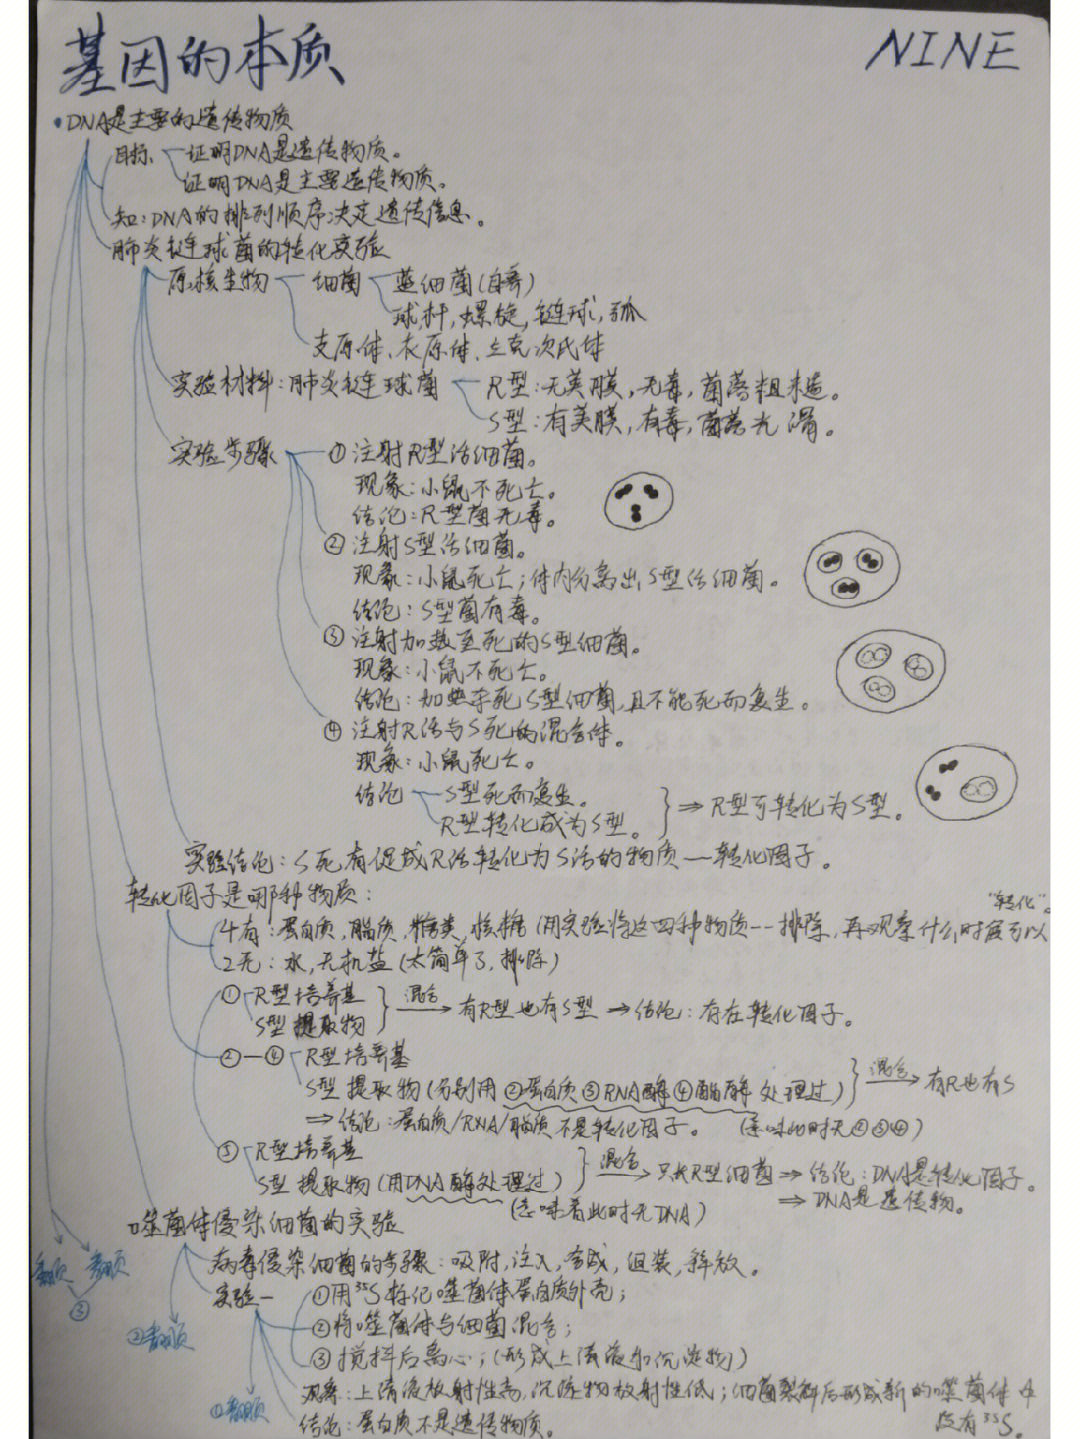 基因的本质
NINE
•DNA是主要的遗传物质
目标 证明DNA是遗传物质。
证明DNA是主要遗传物质。
知:DNA的排列顺序决定遗传信息。
肺炎链球菌的转化实验
原核生物 细菌 蓝细菌(自养)
球,杆,螺旋,链球,弧
支原体、衣原体、立克次氏体
实验材料:肺炎链球菌 R型:无荚膜,无毒,菌落粗糙。
S型:有荚膜,有毒,菌落光滑。
实验步骤 ①注射R型活细菌。
现象:小鼠不死亡。
结论:R型菌无毒。
②注射S型活细菌。
现象:小鼠死亡;体内分离出S型活细菌。
结论:S型菌有毒。
③注射加热至死的S型细菌。
现象:小鼠不死亡。
结论:加热杀死S型细菌,且不能死而复生。
④注射R活与S死的混合体。
现象:小鼠死亡。
结论 S型死而复生。
R型转化成为S型。 }⇒R型可转化为S型。
实验结论:S死有促成R活转化为S活的物质—转化因子。
转化因子是哪种物质:
"转化"。
4有:蛋白质,脂质,糖类,核糖(用实验将这四种物质一一排除,再观察什么时候可以
2无:水,无机盐(太简单了,排除)
①R型培养基
S型提取物 } 混合→ 有R型也有S型⇒结论:存在转化因子。
②—④R型培养基
S型提取物(分别用②蛋白质③RNA酶④酯酶处理过)} 混合→ 有R也有S
⇒结论:蛋白质/RNA/脂质不是转化因子。 (意味此时无②③④)
⑤R型培养基
S型提取物(用DNA酶处理过) } 混合→ 只长R型细菌⇒结论:DNA是转化因子。
(意味着此时无DNA) ⇒DNA是遗传物。
噬菌体侵染细菌的实验
病毒侵染细菌的步骤:吸附,注入,合成,组装,释放。
实验一 ①用³⁵S标记噬菌体蛋白质外壳;
②将噬菌体与细菌混合;
③搅拌后离心;(形成上清液和沉淀物)
现象:上清液放射性高,沉淀物放射性低;细菌裂解后形成新的噬菌体中
没有³⁵S。
结论:蛋白质不是遗传物质。
翻页 翻页
③
②翻页
①翻页